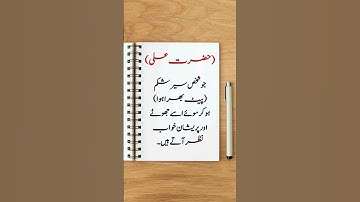 (حضرت علی)
جو شخص سیر شکم
(پیٹ بھرا ہوا)
ہو کر سوئے اسے جھوٹے
اور پریشان خواب
نظر آتے ہیں۔